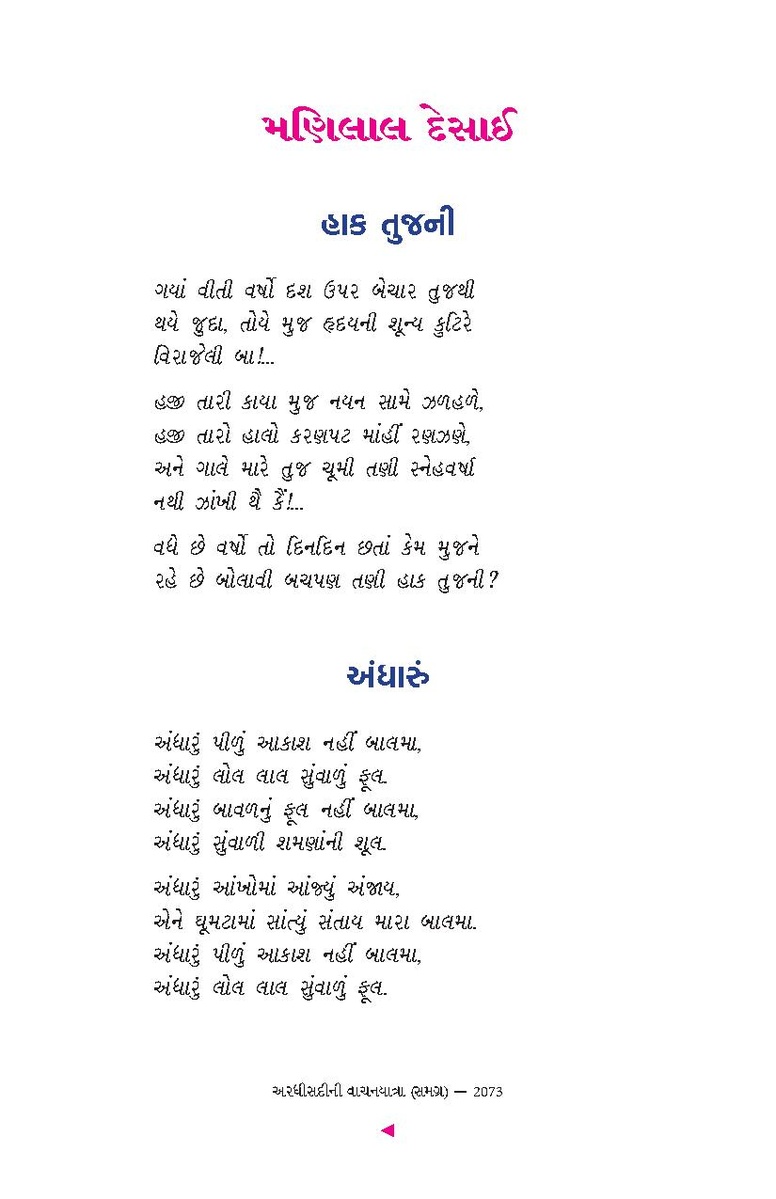 મણિલાલ દેસાઈ
હાક તુજની
ગયાં વીતી વર્ષો દશ ઉપર બેચાર તુજથી
થયે જુદા, તોયે મુજ હૃદયની શૂન્ય કુટિરે
વિરાજેલી બા!...
હજી તારી કાયા મુજ નયન સામે ઝળહળે,
હજી તારો હાલો કરણપટ માંહીં રણઝણે,
અને ગાલે મારે તુજ ચૂમી તણી સ્નેહવર્ષા
નથી ઝાંખી થૈ કૈં!...
વધે છે વર્ષો તો દિનદિન છતાં કેમ મુજને
રહે છે બોલાવી બચપણ તણી હાક તુજની?
અંધારું
અંધારું પીળું આકાશ નહીં બાલમા,
અંધારું લોલ લાલ સુંવાળું ફૂલ.
અંધારું બાવળનું ફૂલ નહીં બાલમા,
અંધારું સુંવાળી શમણાંની શૂલ.
અંધારું આંખોમાં આંજ્યું અંજાય,
એને ઘૂમટામાં સાંત્યું સંતાય મારા બાલમા.
અંધારું પીળું આકાશ નહીં બાલમા,
અંધારું લોલ લાલ સુંવાળું ફૂલ.
અરધીસદીની વાચનયાત્રા (સમગ્ર) — 2073